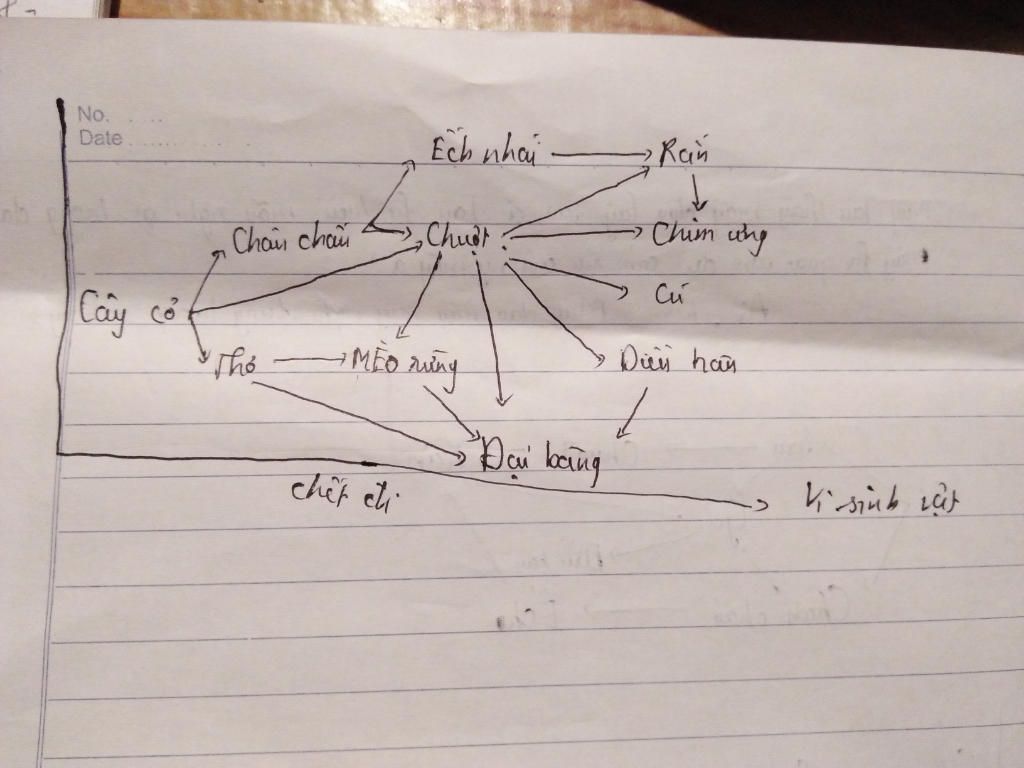 No.
Date
Ếch nhái Rắn
Châu chấu Chuột Chim ưng
Cú
Cây cỏ
Thỏ MÈo rừng Diều hâu
Đại bàng
chết đi Vi sinh vật